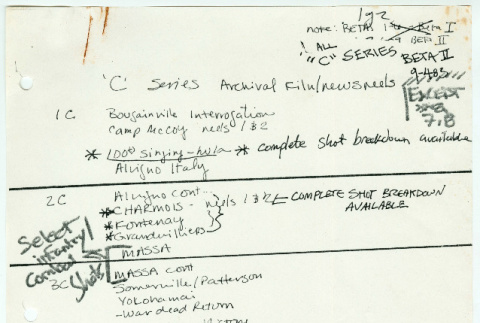 1 of 2
note: BETA I
BETA II
! ALL
"C" SERIES
BETA II
9-483
EXCEPT
7, 8
'C' Series Archival Film/newsreels
1C Bougainville Interrogation
Camp McCoy reels 1 & 2
* 100th singing-hula * complete shot breakdown available
Alvigno Italy
2C Alvigno cont
*CHARMOIS - reels 1 & 2 ← COMPLETE SHOT BREAKDOWN
AVAILABLE
*Fontenay
*Grandvilliers
MASSA
Select
infantry
Combat
Shots
3C MASSA cont
Somerville/Patterson
Yokohamai
-War dead Return